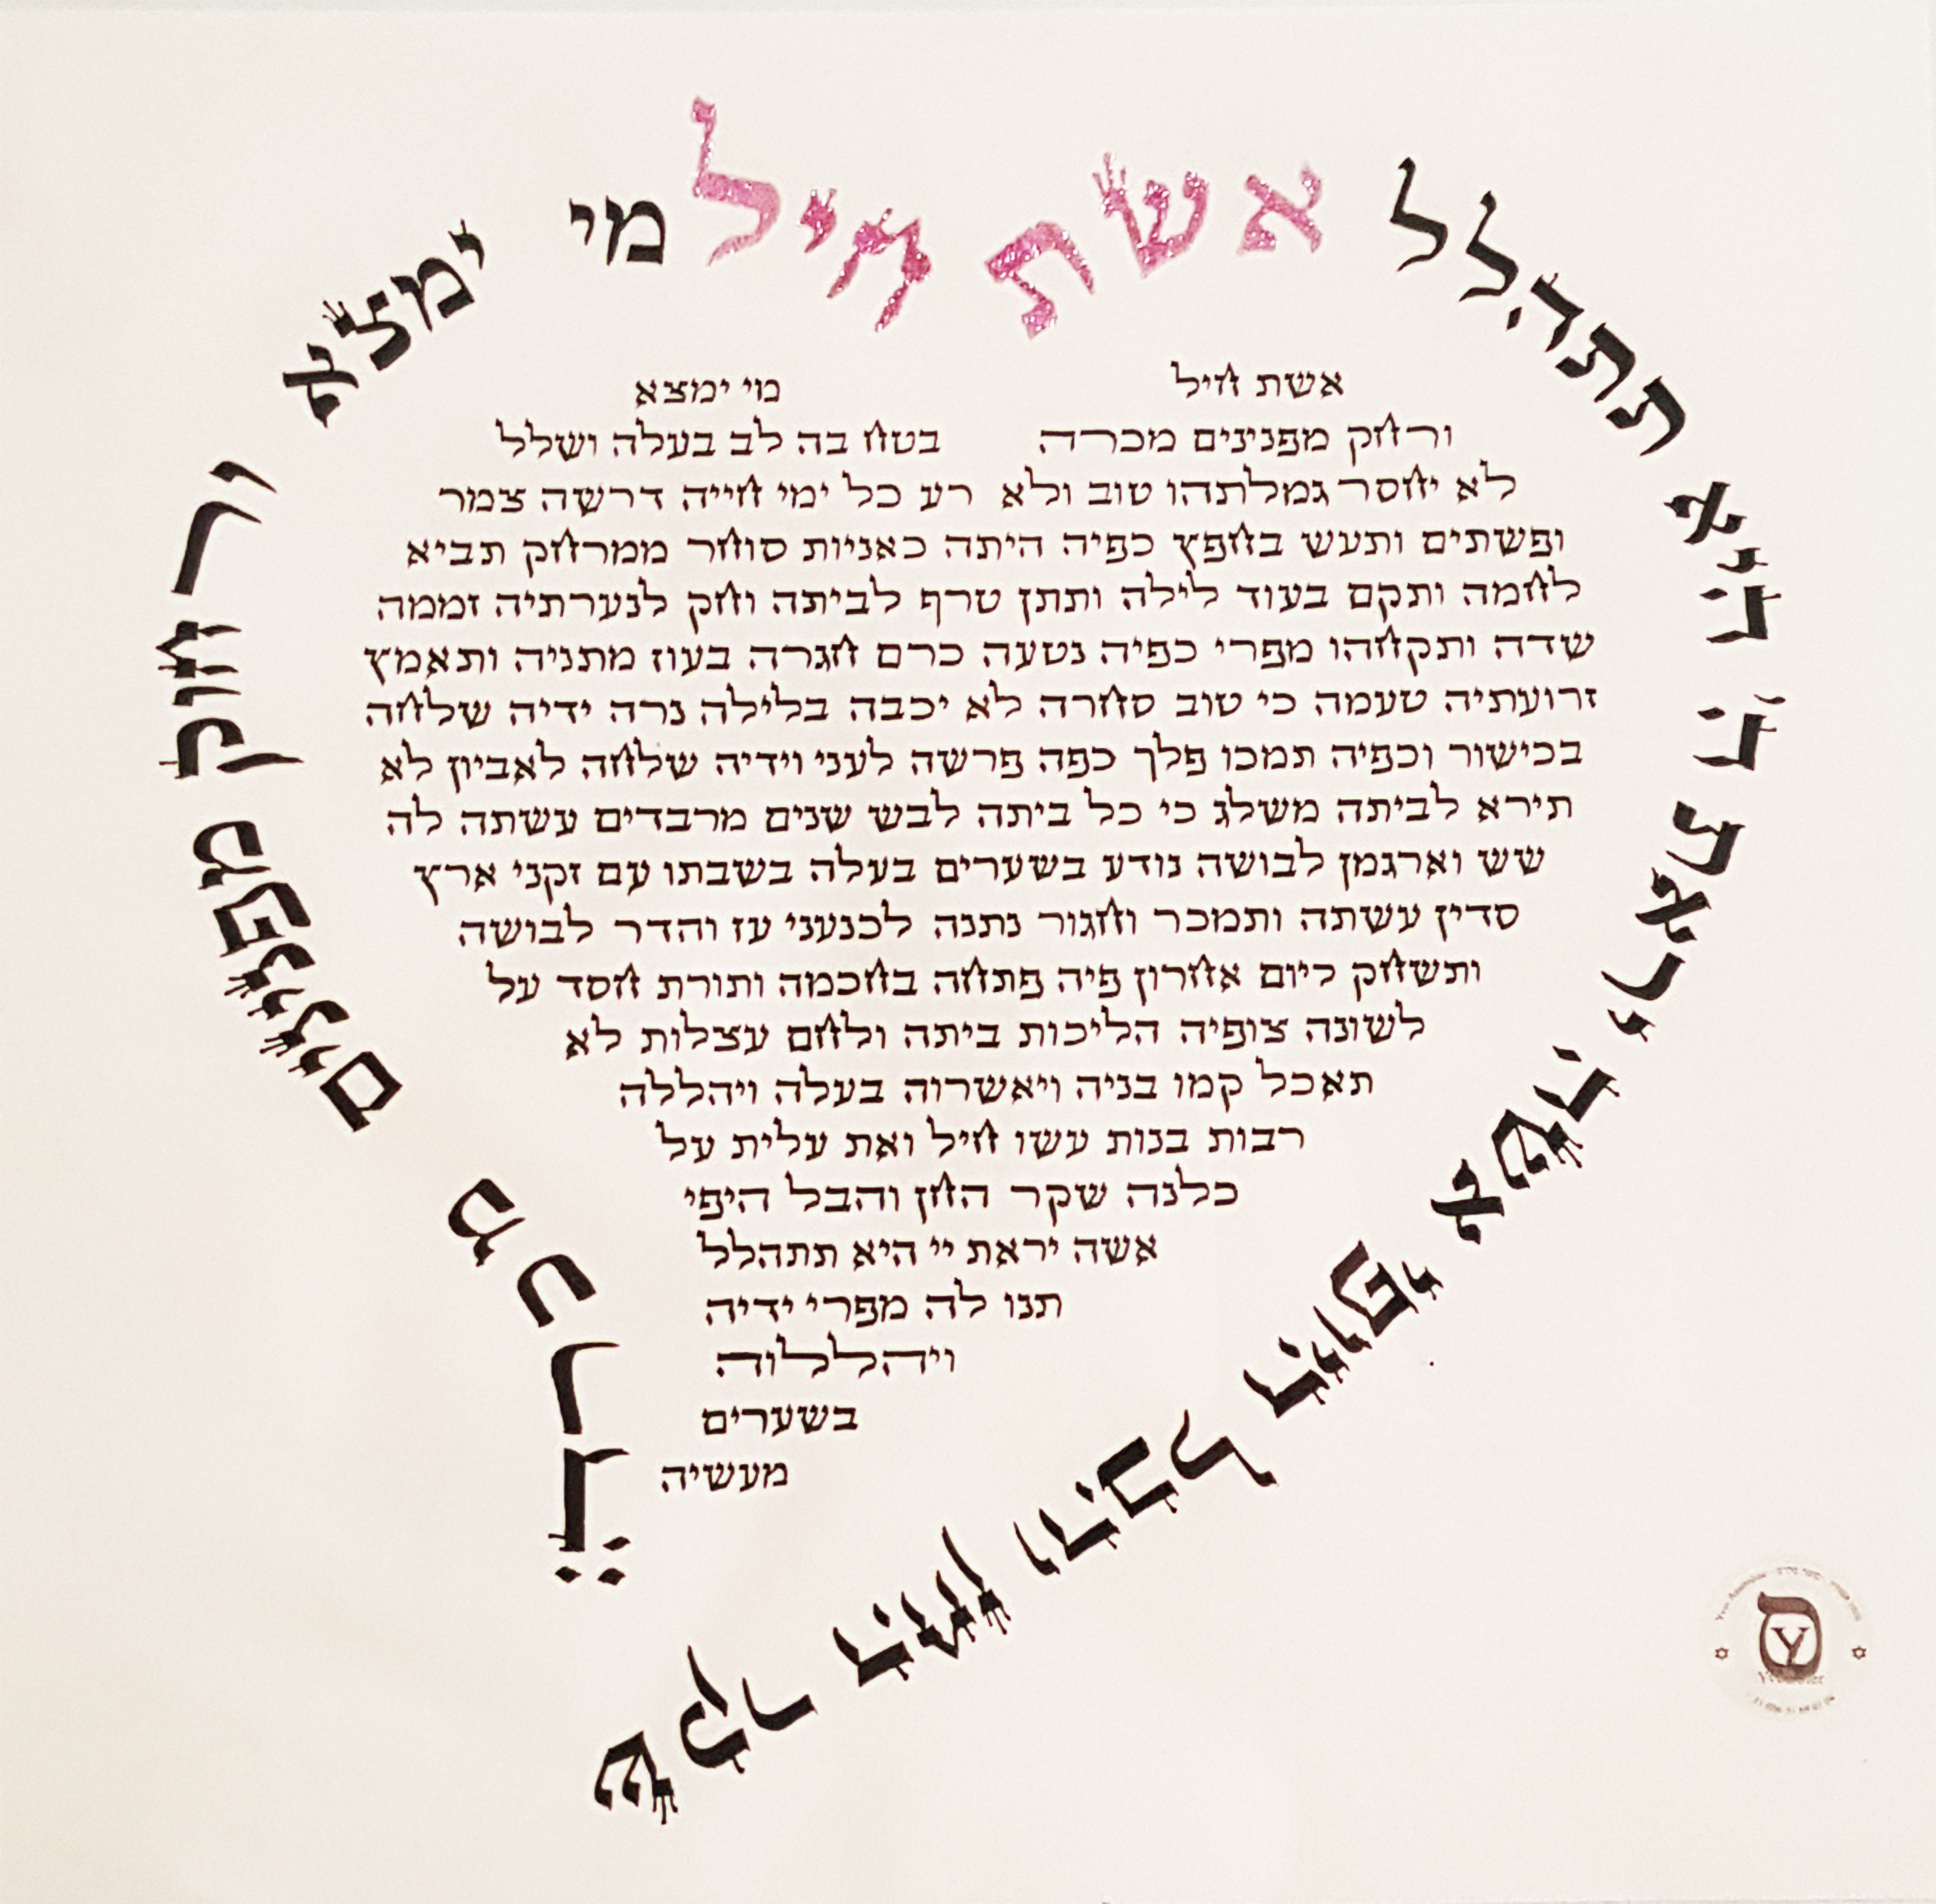 אשת חיל מי ימצא ורחוק מפנינים מכרה:
שקר החן והבל היופי אשה יראת ה' היא תתהלל
אשת חיל מי ימצא
ורחק מפנינים מכרה בטח בה לב בעלה ושלל
לא יחסר גמלתהו טוב ולא רע כל ימי חייה דרשה צמר
ופשתים ותעש בחפץ כפיה היתה כאניות סוחר ממרחק תביא
לחמה ותקם בעוד לילה ותתן טרף לביתה וחק לנערתיה זממה
שדה ותקחהו מפרי כפיה נטעה כרם חגרה בעוז מתניה ותאמץ
זרועתיה טעמה כי טוב סחרה לא יכבה בלילה נרה ידיה שלחה
בכישור וכפיה תמכו פלך כפה פרשה לעני וידיה שלחה לאביון לא
תירא לביתה משלג כי כל ביתה לבש שנים מרבדים עשתה לה
שש וארגמן לבושה נודע בשערים בעלה בשבתו עם זקני ארץ
סדין עשתה ותמכר וחגור נתנה לכנעני עז והדר לבושה
ותשחק ליום אחרון פיה פתחה בחכמה ותורת חסד על
לשונה צופיה הליכות ביתה ולחם עצלות לא
תאכל קמו בניה ויאשרוה בעלה ויהללה
רבות בנות עשו חיל ואת עלית על
כלנה שקר החן והבל היפי
אשה יראת יי היא תתהלל
תנו לה מפרי ידיה
ויהללוה
בשערים
מעשיה